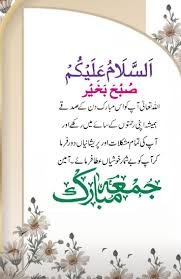 اَلسَّلَامُ عَلَيْكُمْ
صُبْح بَخَيْر
اللہ تعالیٰ آپ کو اس مبارک دن کے صدقے
ہمیشہ اپنی رحمتوں کے سائے میں رکھے اور
آپ کی تمام مشکلات اور پریشانیاں دور فرما
کر آپ کو بیشمار خوشیاں عطا فرمائے۔ آمین
جمعہ مبارک